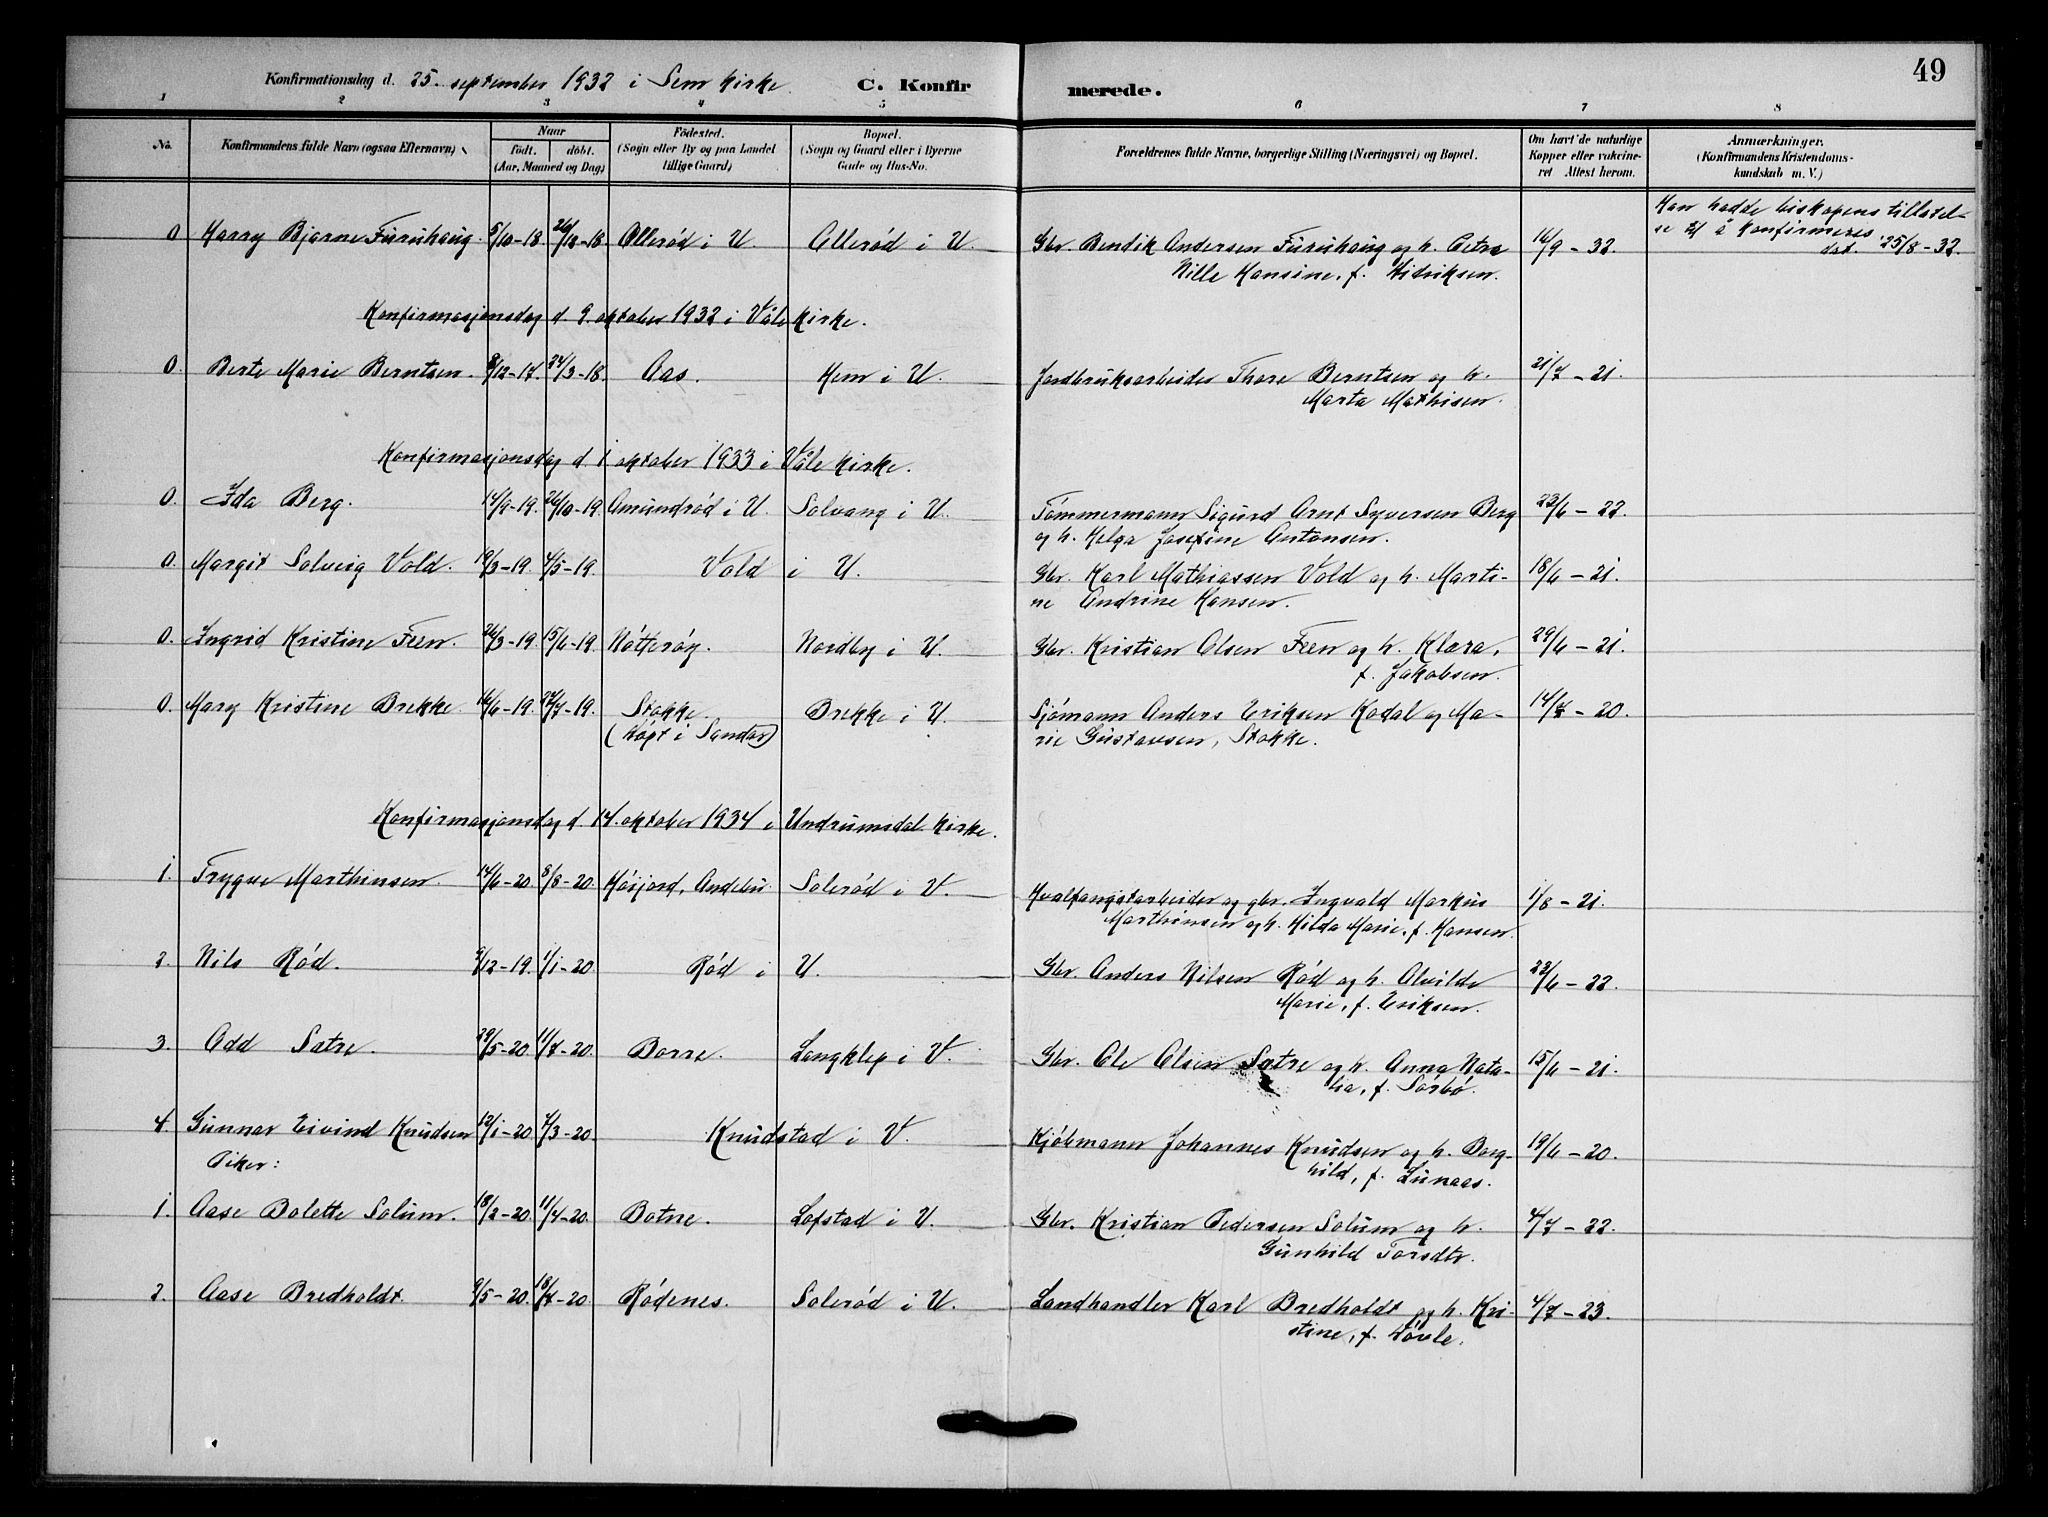 49
Konfirmationsdag d. 25. september 1932 i Sem kirke. C. Konfirmerede.
1 2 3 4 5 6 7 8
No. Konfirmandens fulde Navn (ogsaa Efternavn) Naar født. døbt. (Aar, Maaned og Dag) Fødested. (Sogn eller By og paa Landet tillige Gaard) Bopæl. (Sogn og Gaard eller i Byerne Gade og Hus-No. Forældrenes fulde Navne, borgerlige Stilling (Næringsvei) og Bopæl. Om havt de naturlige Kopper eller vakcineret Attest herom. Anmærkninger. (Konfirmandens Kristendomskundskab m. V.)
0 Harry Bjarne Furuhaug. 5/10-18 26/12-18 Ollerød i U. Ollerød i U Gbr. Bendik Andersen Furuhaug og h. Petra 16/9-32. Han hadde biskopens tillatel-
Nille Hansine, f. Didriksen. se til å konfirmeres
dat. 25/8-32.
Konfirmasjonsdag d. 9. oktober 1932 i Våle kirke.
0. Berte Marie Berntsen. 8/12-17. 24/3-18. Aas. Hem i U. Jordbruksarbeider Thore Berntsen og h. 21/7-21.
Marta Mathisen.
Konfirmasjonsdag d. 1 oktober 1933 i Våle kirke.
0. Ida Berg. 14/9-19. 26/10-19. Amundrød i U. Solvang i U. Tømmermann Sigurd Arnt Syversen Berg 23/6-22.
og h. Helga Josefine Antonsen.
0. Margit Solveig Vold. 19/3-19. 4/5-19. Vold i U. Gbr. Karl Mathiassen Vold og h. Marti- 18/6-21.
ne Andrine Hansen.
0. Ingrid Kristine Feen. 26/3-19. 15/6-19. Nøtterøy. Nordby i U. Gbr. Kristian Olsen Feen og h. Klara, 29/6-21.
f. Jakobsen.
0. Mary Kristine Brekke. 16/6-19. 27/7-19. Stokke. Brekke i U. Sjømann Anders Eriksen Kodal og Ma- 14/7-20.
(døpt i Sandar) rie Gustavsen, Stokke.
Konfirmasjonsdag d. 14. oktober 1934 i Undrumsdal kirke.
1. Trygve Marthinsen. 14/6-20. 8/8-20. Høijord, Andebu. Solerød i V. Hvalfangstarbeider og gbr. Ingvald Markus 1/8-21.
Marthinsen og h. Hilda Marie, f. Hansen.
2. Nils Rød. 9/12-19. 1/1-20 Rød i U. Gbr. Anders Nilsen Rød og h. Alvilde 23/6-22.
Marie, f. Eriksen.
3. Odd Satre. 29/5-20. 11/7-20. Borre. Langklep i V. Gbr. Ole Olsen Satre og h. Anna Nata- 15/6-21.
lia, f. Sørbø.
4. Gunnar Eivind Knudsen 12/1-20. 4/3-20. Knudstad i V. Kjøbmann Johannes Knudsen og h. Borg- 19/6-20.
Piker: hild, f. Lunaas.
1. Aase Bolette Solum. 18/2-20. 11/4-20. Botne. Lofstad i U. Gbr. Kristian Pedersen Solum og h. 4/7-22.
Gunhild Torsdtr.
2. Aase Bredholdt. 9/5-20. 18/7-20. Rødenes. Solerød i U. Landhandler Karl Bredholdt og h. Kri- 4/7-23.
stine, f. Bøvle.